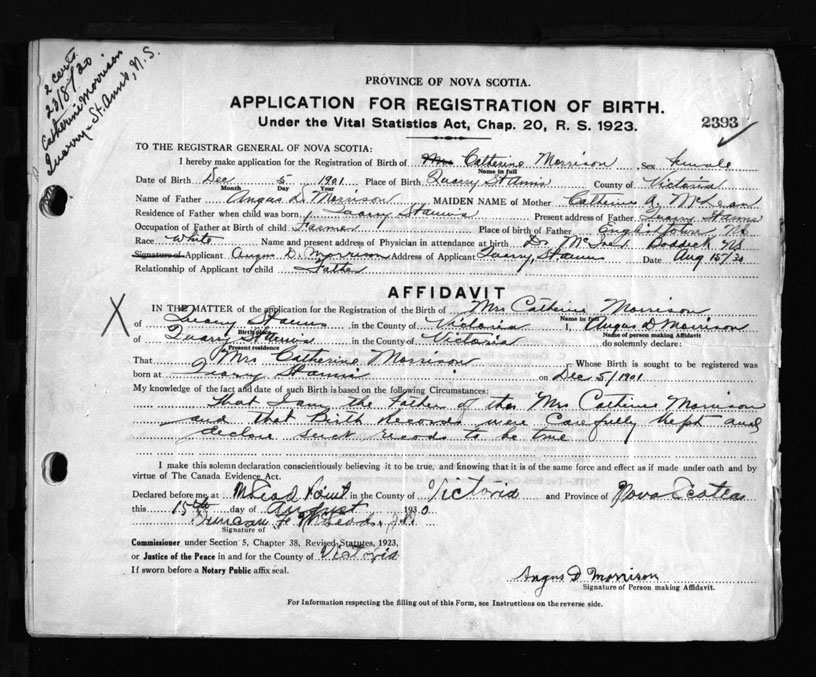 2 certs.
23/8/30
Catherine Morrison
Quarry St. Ann's, N.S.
PROVINCE OF NOVA SCOTIA.
APPLICATION FOR REGISTRATION OF BIRTH.
Under the Vital Statistics Act, Chap. 20, R. S. 1923.
2393
TO THE REGISTRAR GENERAL OF NOVA SCOTIA:
I hereby make application for the Registration of Birth of Mrs Catherine Morrison Sex female
Name in full
Date of Birth Dec 5 1901 Place of Birth Quarry St Anns County of Victoria
Month Day Year
Name of Father Angus D. Morrison MAIDEN NAME of Mother Catherine A. McLean
Residence of Father when child was born Quarry St anns Present address of Father Quarry St anns
Occupation of Father at Birth of child Farmer Place of birth of Father Englishtown, NS
Race White Name and present address of Physician in attendance at birth Dr. Baddeck NS
Signature of Applicant Angus D. Morrison Address of Applicant Quarry, St anns Date Aug 15/30
Relationship of Applicant to child Father
AFFIDAVIT
IN THE MATTER of the application for the Registration of the Birth of Mrs Catherine Morrison
Name in full
of Quarry St anns in the County of Victoria I, Angus D Morrison
Birth place Name of person making Affidavit
of Quarry St anns in the County of Victoria do solemnly declare:
Present residence
That Mrs Catherine Morrison Whose Birth is sought to be registered was
born at Quarry St anns on Dec 5/1901
My knowledge of the fact and date of such Birth is based on the following Circumstances:
That I am the Father of the Mrs Catherine Morrison
and that Birth Records were Carefully Kept and
declare such records to be true
I make this solemn declaration conscientiously believing it to be true, and knowing that it is of the same force and effect as if made under oath and by
virtue of The Canada Evidence Act.
Declared before me at McLeod Point in the County of Victoria and Province of Nova Scotia
this 15th day of August 1930
Duncan F. McLeod J.P.
Signature of
Commissioner under Section 5, Chapter 38, Revised Statutes, 1923,
or Justice of the Peace in and for the County of Victoria
If sworn before a Notary Public affix seal.
Angus D Morrison
Signature of Person making Affidavit.
For Information respecting the filling out of this Form, see Instructions on the reverse side.